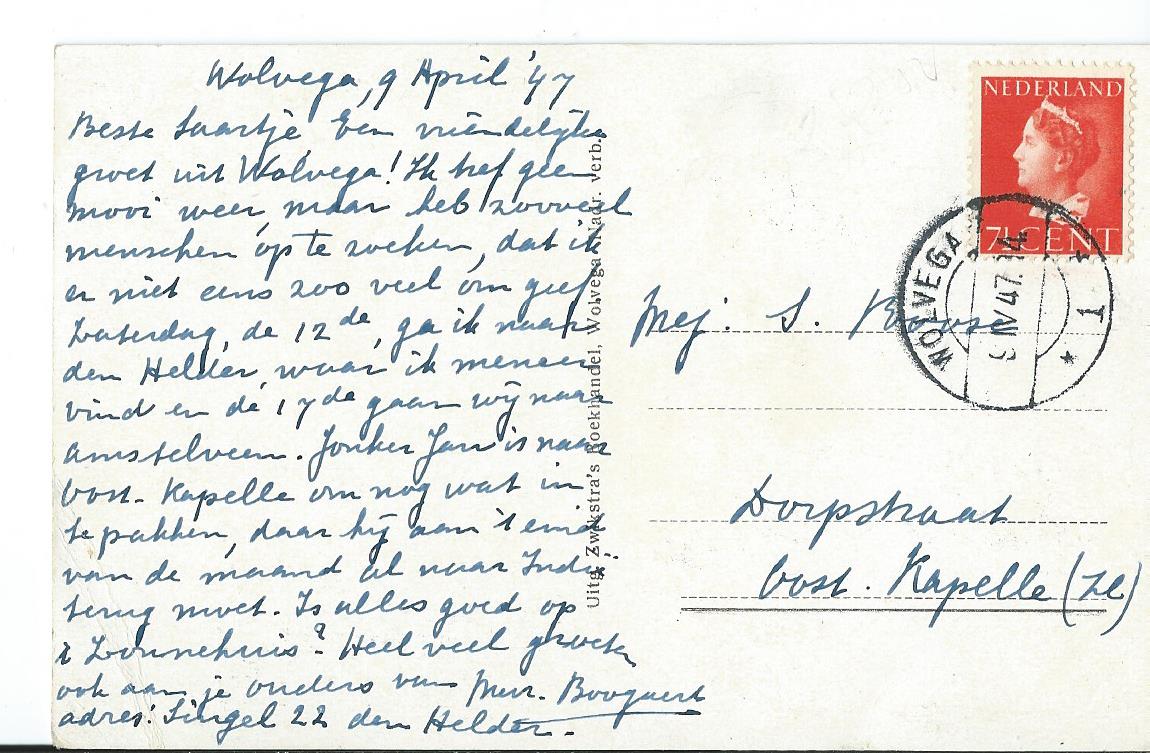 Wolvega, 9 April '47
Beste Saartje Een vriendelijke
groet uit Wolvega! Ik tref geen
mooi weer, maar heb zooveel
menschen op te zoeken, dat ik
er niet eens zoo veel om geef
Zaterdag, de 12de, ga ik naar
den Helder, waar ik meneer
vind en de 17de gaan wij naar
Amstelveen. Jonker Jan is naar
Oost-Kapelle om nog wat in
te pakken, daar hij aan 't eind
van de maand al naar Indië
terug moet. Is alles goed op
't Zonnehuis? Heel veel groeten
ook aan je ouders van Mevr. Boogaert
adres: Singel 22 den Helder.
Uitg. Zwikstra's Boekhandel, Wolvega. Nadr. verb.
NEDERLAND
7½ CENT
WOLVEGA
9 IV 47. 14
1
Mej. S.
Dorpstraat
Oost-Kapelle (Zl)